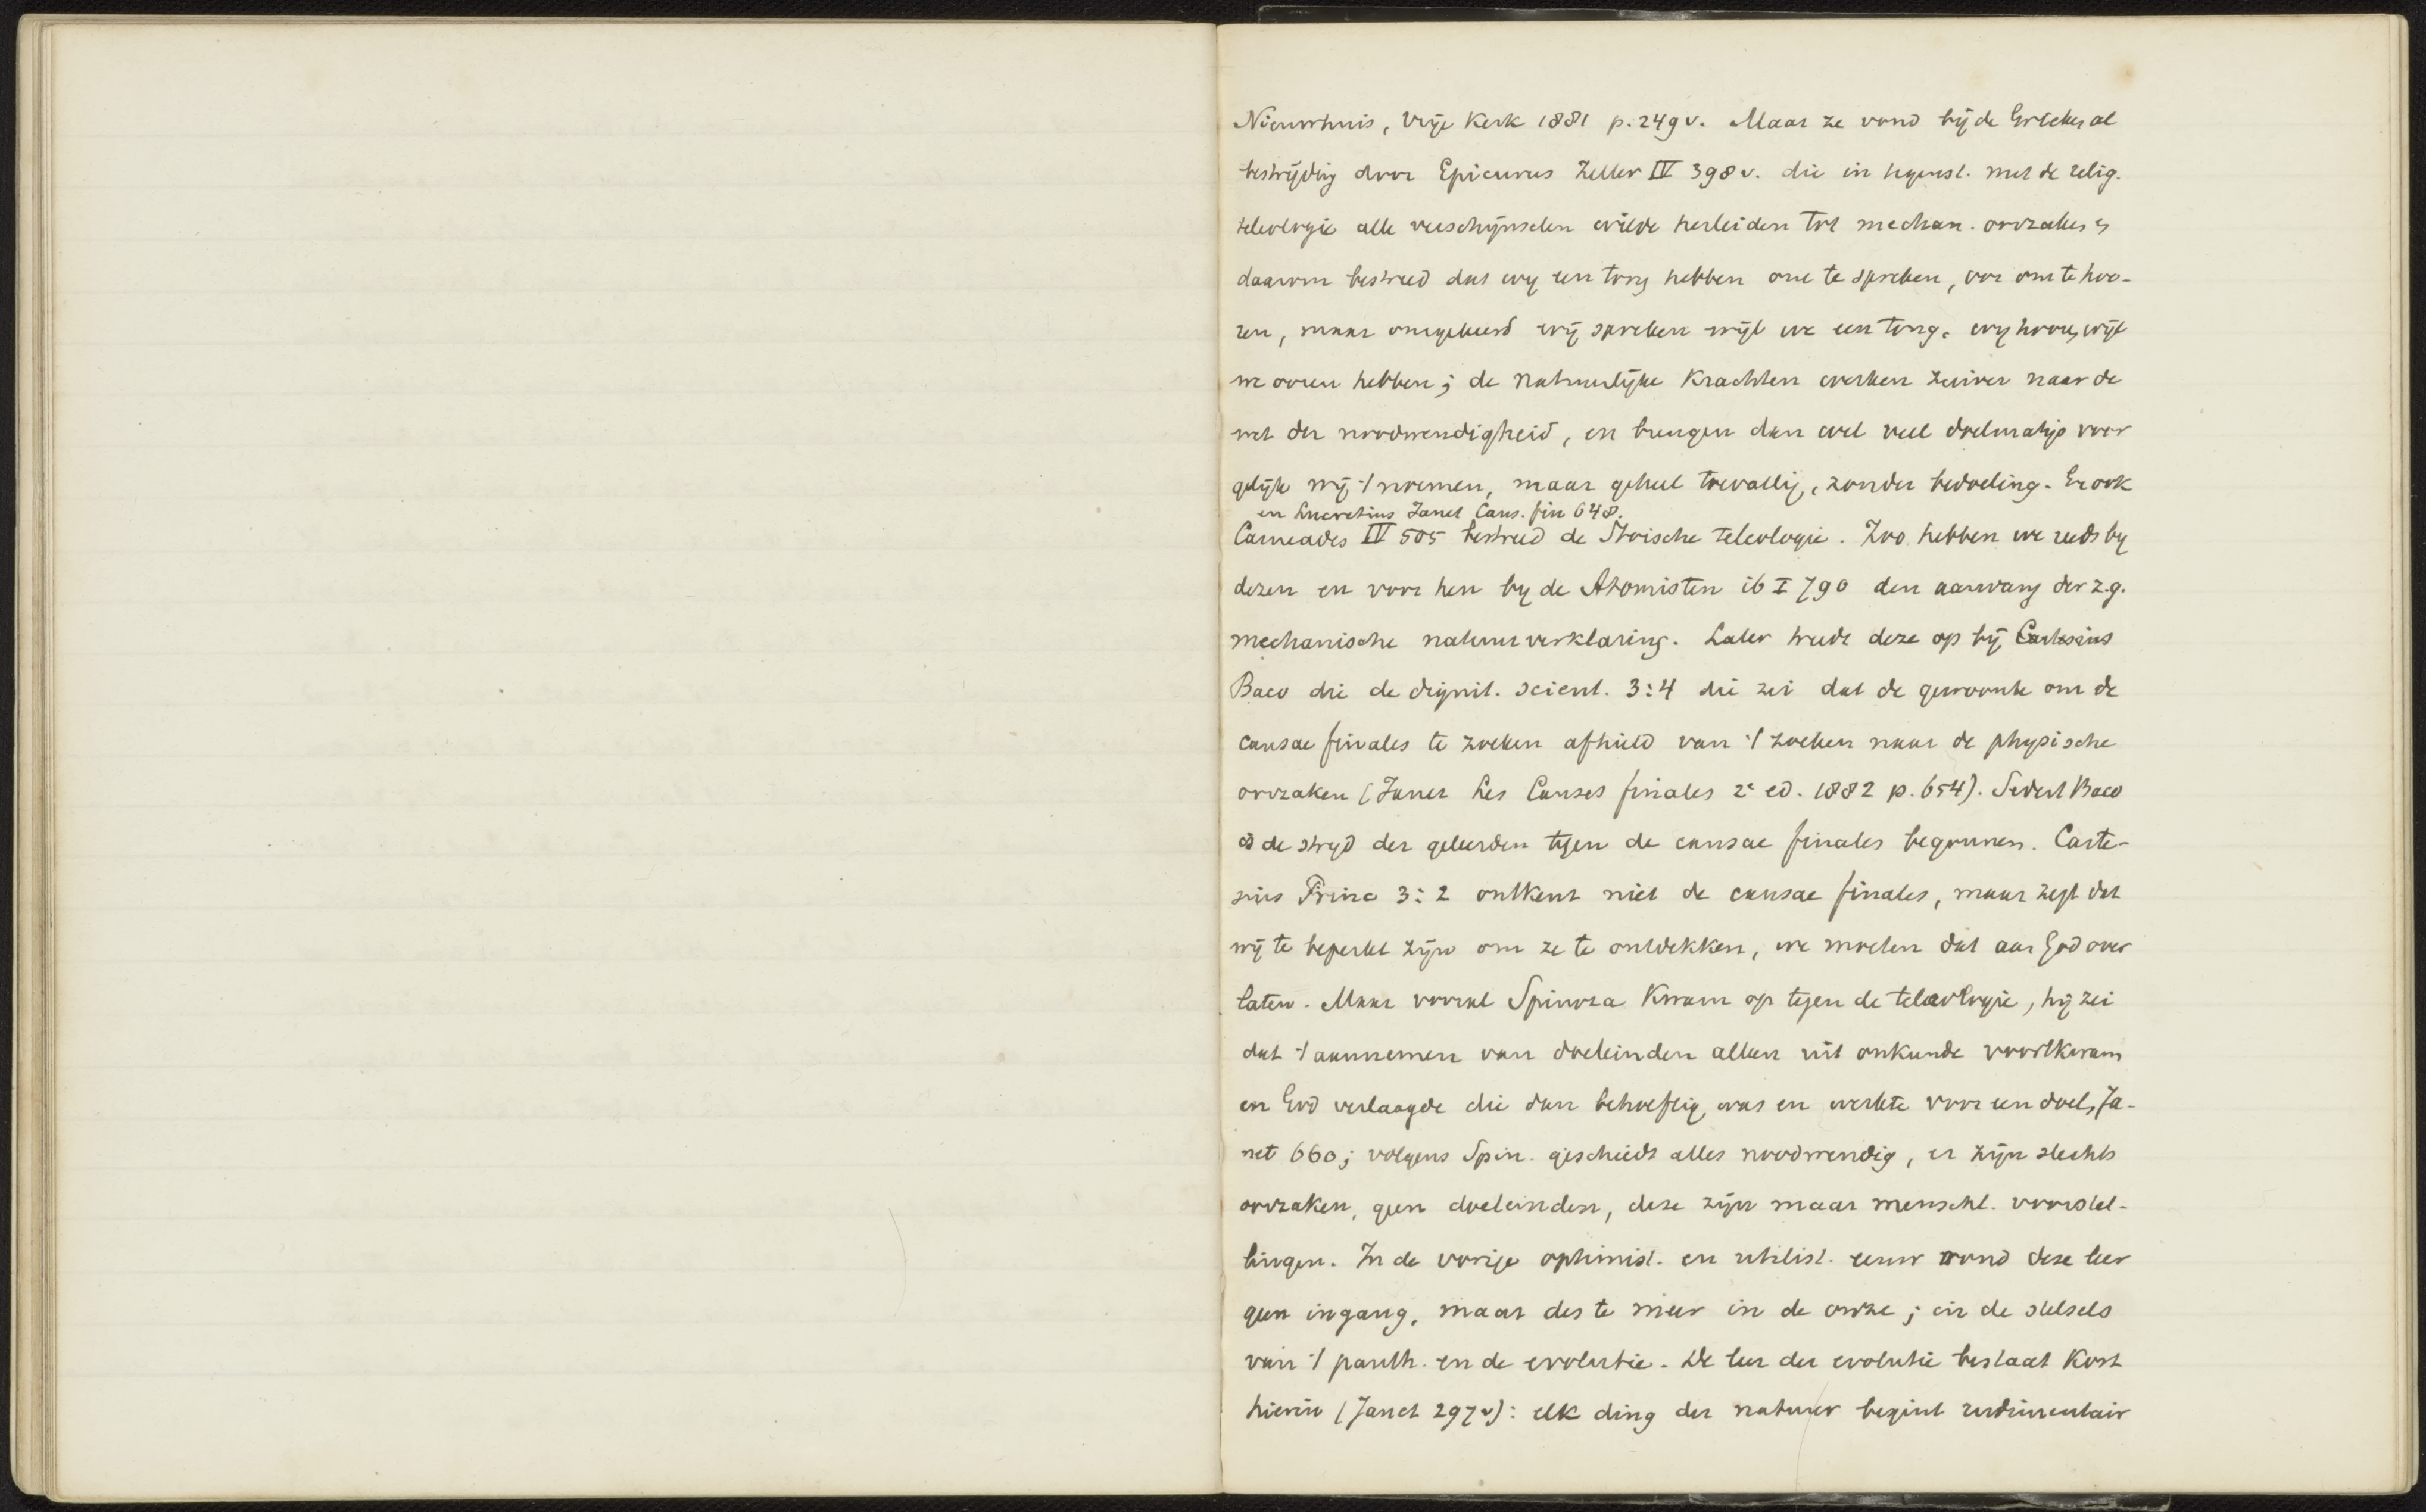 Nieuwhuis, Vrije Kerk 1881 p. 249 v. Maar ze vond bij de Grieken al
bestrijding door Epicurus Zeller IV 398 v. die in tegenst. met de relig.
teleologie alle verschijnselen wilde herleiden tot mechan. oorzaken en
daarom bestreed dat wy een tong hebben om te spreken, oor om te hoo-
ren, maar omgekeerd wij spreken wijl we een tong, wy hooren, wijl
we ooren hebben; de natuurlijke krachten werken zuiver naar de
wet der noodwendigheid, en brengen dan wel veel doelmatigs voor
gelijk wij 't noemen, maar geheel toevallig, zonder bedoeling. En ook
en Lucretius Janet Caus. fin 648.
Carneades IV 505 bestreed de Stoische teleologie. Zoo hebben we reeds by
dezen en voor hen by de Atomisten ib I 790 den aanvang der z.g.
mechanische natuurverklaring. Later trede deze op bij Cartesius
Baco die de dignit. scient. 3:4 die zei dat de gewoonte om de
causae finales te zoeken afhield van 't zoeken naar de physische
oorzaken (Janet Les Causes finales 2e ed. 1882 p. 654). Sedert Baco
is de stryd der geleerden tegen de causae finales begonnen. Carte-
sius Princ 3:2 ontkent niet de causae finales, maar zegt dat
wij te beperkt zijn om ze te ontdekken, we moeten dat aan God over
laten. Maar vooral Spinoza kwam op tegen de teleologie, hij zei
dat 't aannemen van doeleinden alleen uit onkunde voortkwam
en God verlaagde die dan behoeftig was en werkte voor een doel, Ja-
net 660; volgens Spin. geschiedt alles noodwendig, er zijn slechts
oorzaken, geen doeleinden, deze zijn maar menschl. voorstel-
lingen. In de vorige optimist. en utilist. eeuw vond deze leer
geen ingang, maar des te meer in de onze; in de stelsels
van 't panth. en de evolutie. De leer der evolutie bestaat kort
hierin (Janet 297 v): elk ding der natuur begint rudimentair